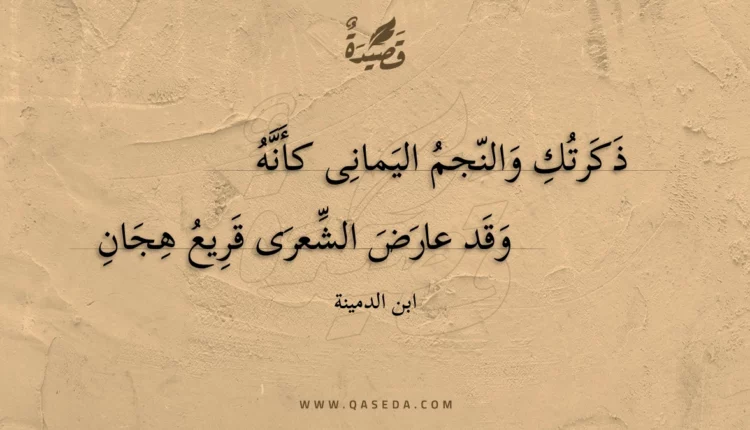 قَصِيْدَةٌ
ذَكَرتُكِ وَالنّجمُ اليَمانِى كأَنَّهُ
وَقَد عارَضَ الشِّعرَى قَرِيعُ هِجَانِ
ابن الدمينة
WWW.QASEDA.COM